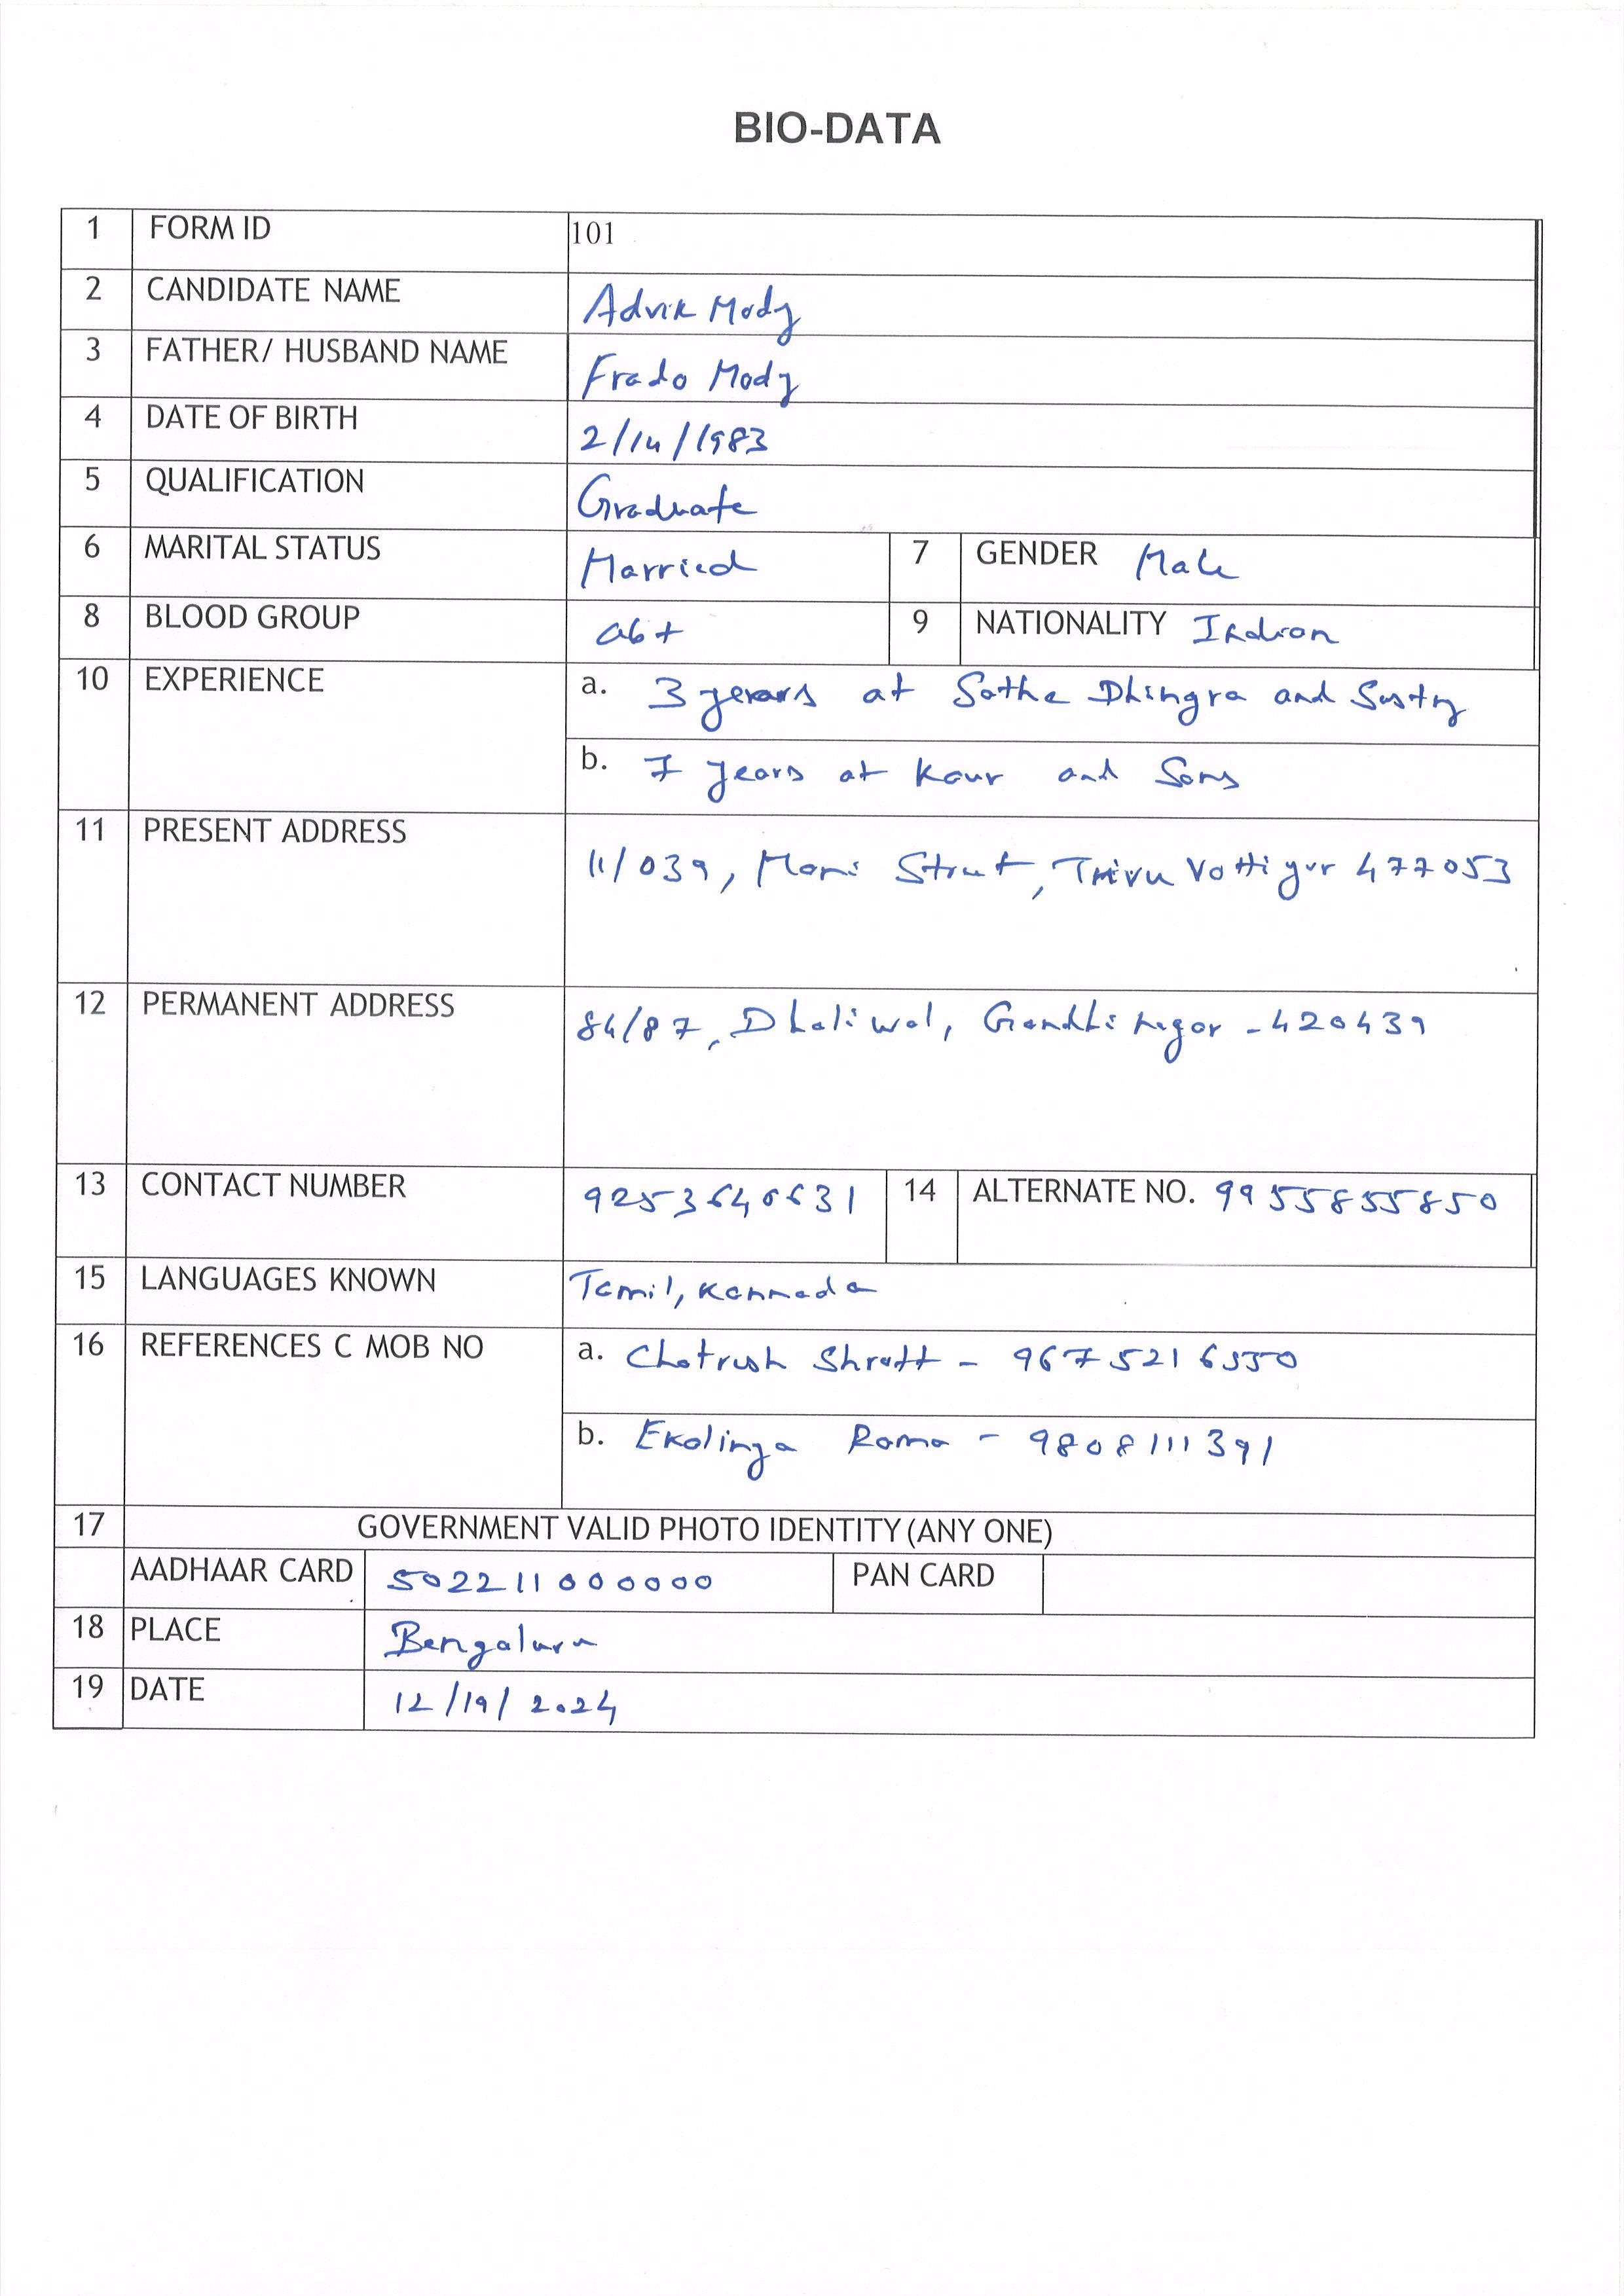 BIO-DATA
1 FORM ID 101
2 CANDIDATE NAME Advik Mody
3 FATHER/ HUSBAND NAME Frado Mody
4 DATE OF BIRTH 2/14/1983
5 QUALIFICATION Graduate
6 MARITAL STATUS Married 7 GENDER Male
8 BLOOD GROUP ab+ 9 NATIONALITY Indian
10 EXPERIENCE a. 3 years at Sathe Dhingra and Sastry
b. 7 years at Kaur and Sons
11 PRESENT ADDRESS
11/039, Mani Street, Tiruvottiyur 477053
12 PERMANENT ADDRESS
84/87, Dhaliwal, Gandhinagar - 420439
13 CONTACT NUMBER 9253640631 14 ALTERNATE NO. 9955855850
15 LANGUAGES KNOWN Tamil, Kannada
16 REFERENCES C MOB NO a. Shratt - 9675216550
b. Ekalinga Rama - 9808111391
17 GOVERNMENT VALID PHOTO IDENTITY (ANY ONE)
AADHAAR CARD 502211000000 PAN CARD
18 PLACE Bengaluru
19 DATE 12/19/2024